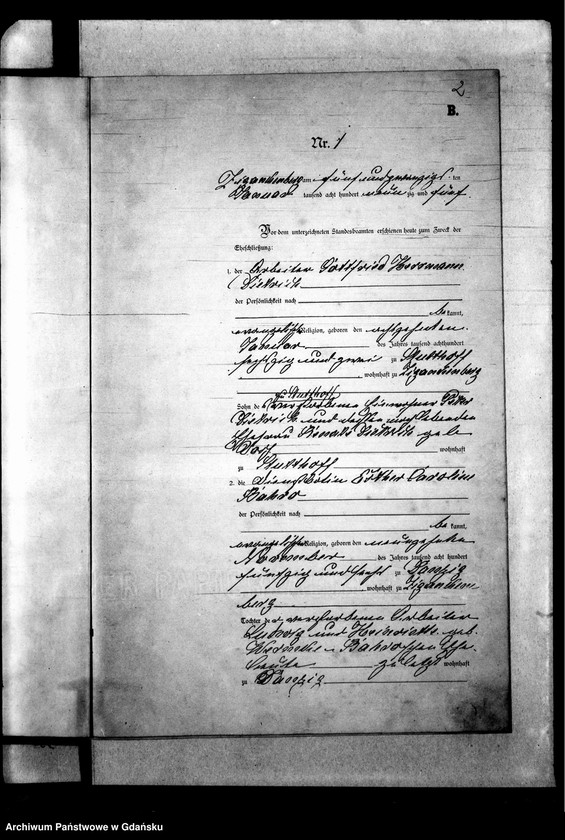 2
B.
Nr. 1
Zigankenberg am fünfundzwanzigs ten
Januar tausend acht hundert neun zig und fünf.
Vor dem unterzeichneten Standesbeamten erschienen heute zum Zweck der
Eheschließung:
1. der Arbeiter Gottfried Herrmann
der Persönlichkeit nach
be kannt,
evangelischer Religion, geboren den achtzehnten
Januar des Jahres tausend achthundert
sechszig und zwei zu Stutthoff
, wohnhaft zu Zigankenberg
zu Stutthoff
Sohn de verstorbene Einwohner Peter
und dessen noch lebenden
Ehefrau geb
wohnhaft
zu Stutthoff
2. die Dienstbotin Esther Caroline
der Persönlichkeit nach
be kannt,
evangelischer Religion, geboren den neunzehn
November des Jahres tausend acht hundert
fünfzig und sechs zu Danzig
, wohnhaft zu Ziganken
berg
Tochter der verstorbene Arbeiter
Ludwig und Heinriette geb.
Ehe-
leute zuletzt wohnhaft
zu Danzig
Archiwum Państwowe w Gdańsku